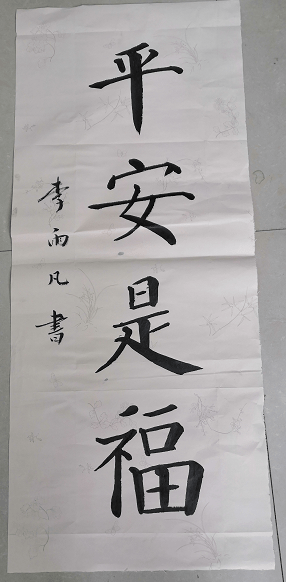 平安是福
李雨凡書